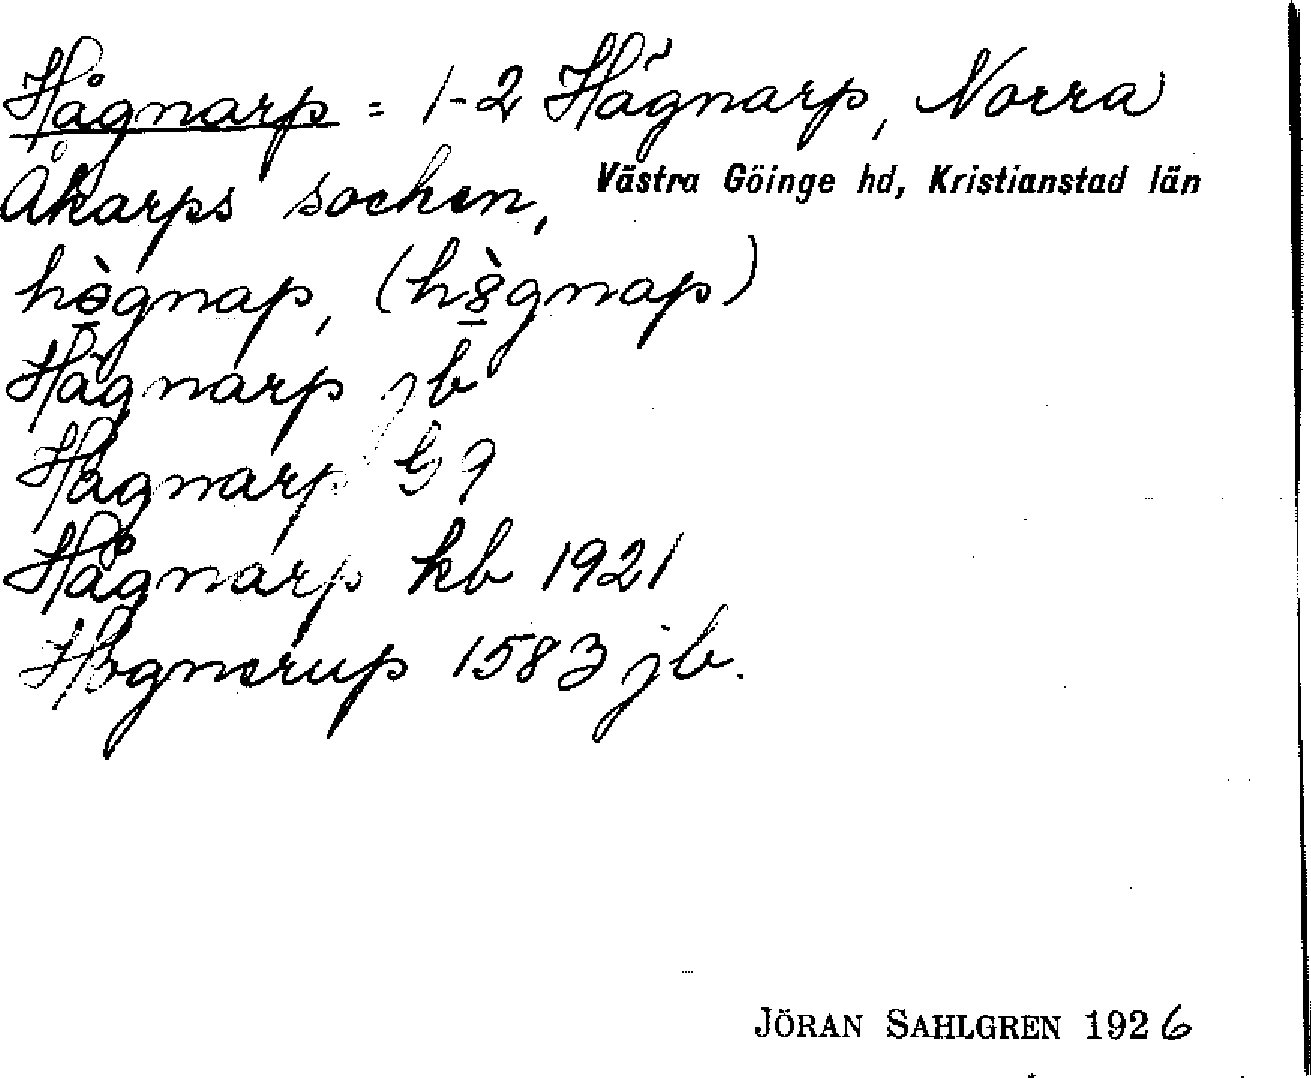 Hågnarp = 1-2 Hägnarp, Norra
Åkarps socken, Västra Göinge hd, Kristianstad län
hògnap, (hṣ̀gnap)
Hägnarp jb
Hågnarp kb 1921
Hognerup 1583 jb.
JÖRAN SAHLGREN 1926